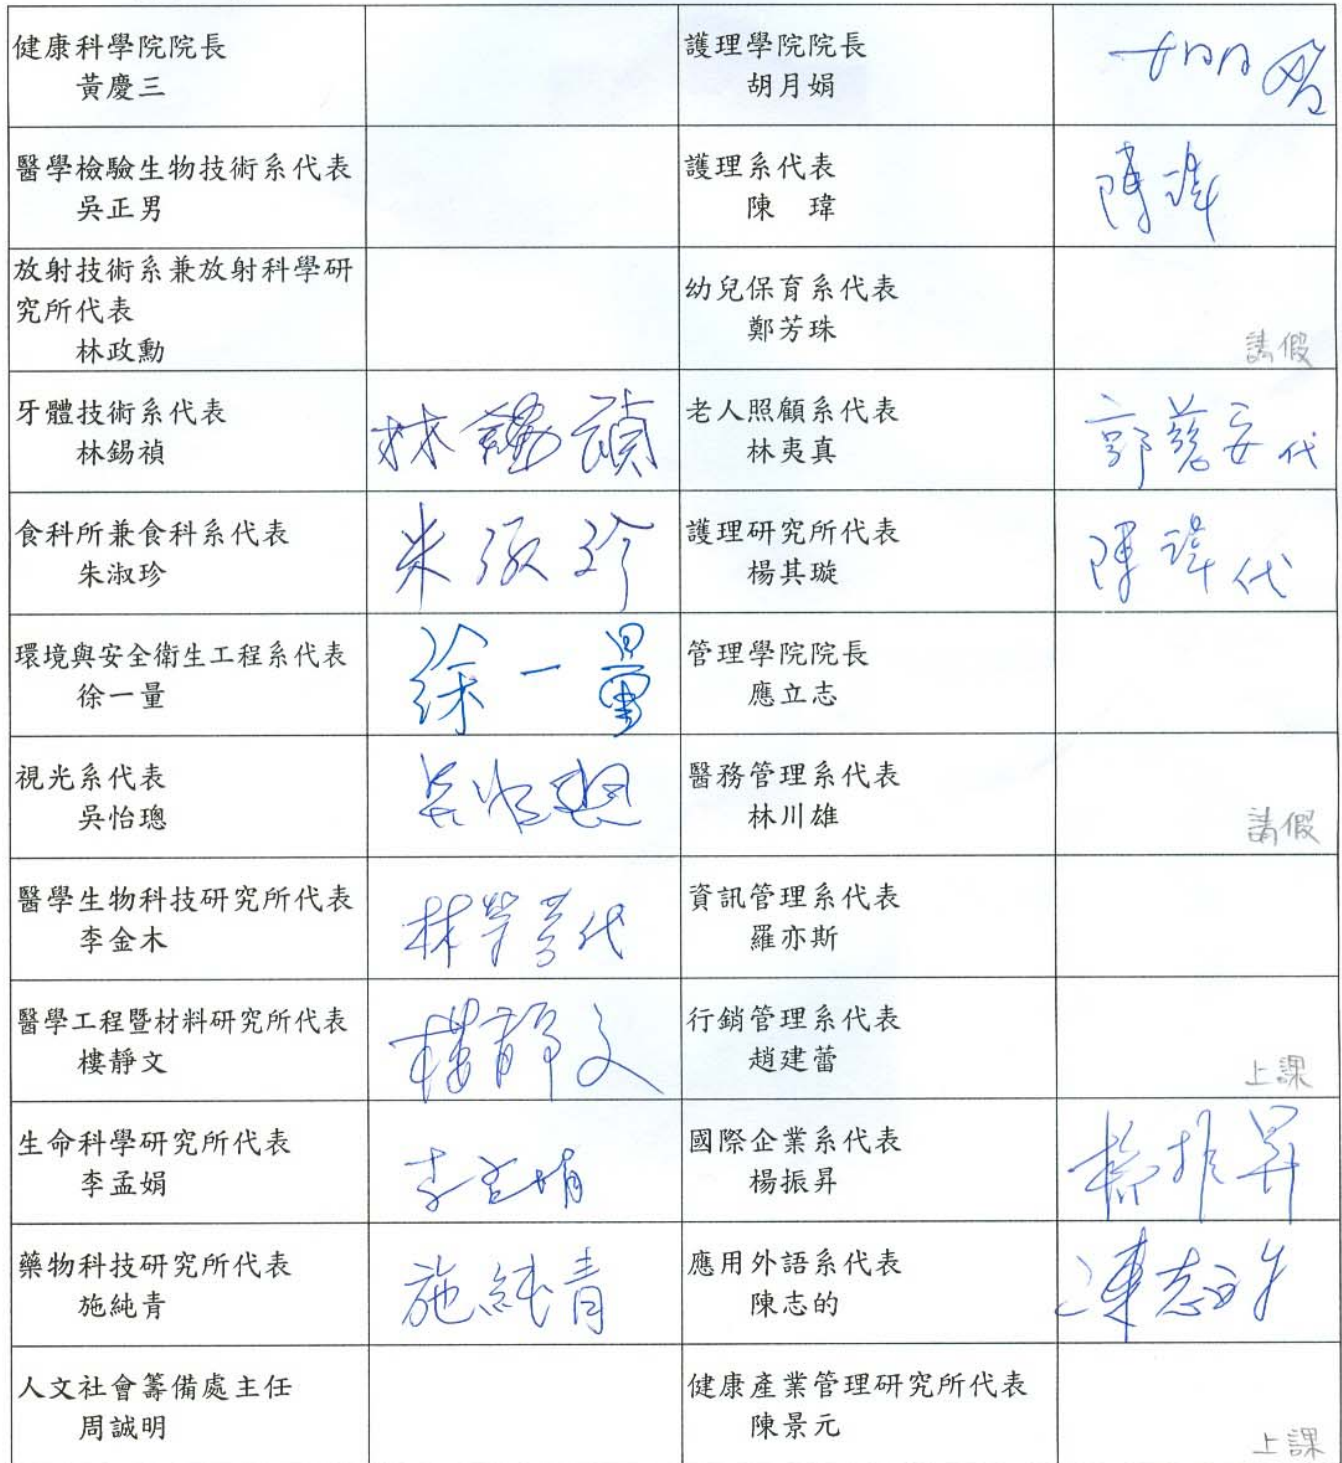 健康科學院院長
黃慶三
護理學院院長
胡月娟
胡月娟
醫學檢驗生物技術系代表
吳正男
護理系代表
陳　瑋
陳瑋
放射技術系兼放射科學研
究所代表
林政勳
幼兒保育系代表
鄭芳珠
請假
牙體技術系代表
林錫禎
林錫禎
老人照顧系代表
林夷真
郭慈安代
食科所兼食科系代表
朱淑珍
朱淑珍
護理研究所代表
楊其璇
陳瑋代
環境與安全衛生工程系代表
徐一量
徐一量
管理學院院長
應立志
視光系代表
吳怡璁
吳怡璁
醫務管理系代表
林川雄
請假
醫學生物科技研究所代表
李金木
資訊管理系代表
羅亦斯
醫學工程暨材料研究所代表
樓靜文
樓靜文
行銷管理系代表
趙建蕾
上課
生命科學研究所代表
李孟娟
李孟娟
國際企業系代表
楊振昇
楊振昇
藥物科技研究所代表
施純青
施純青
應用外語系代表
陳志的
陳志的
人文社會籌備處主任
周誠明
健康產業管理研究所代表
陳景元
上課